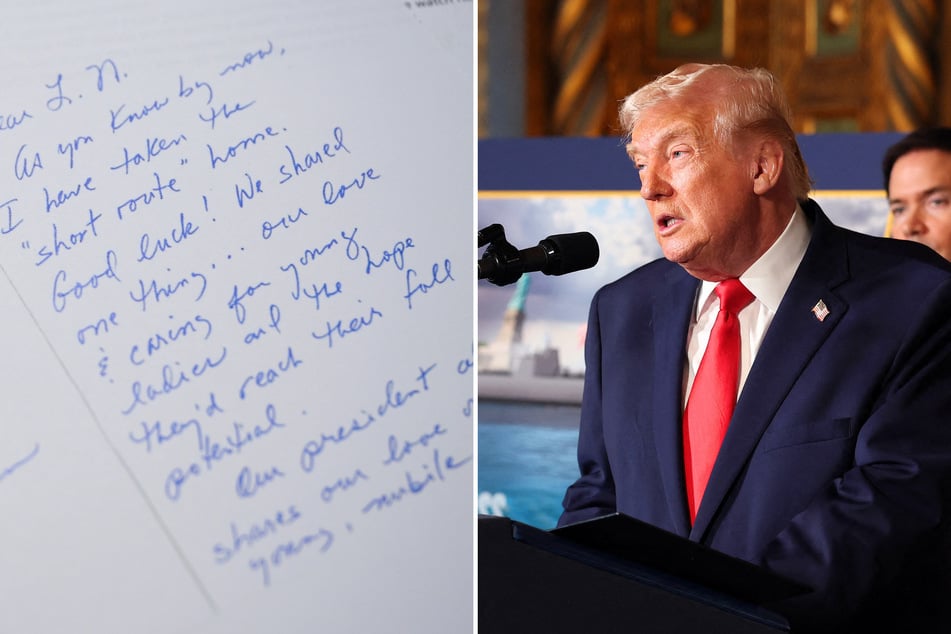 9 watch
Dear L. N.
As you know by now,
I have taken the
"short route" home.
Good luck! We shared
one thing... our love
& caring for young
ladies and the hope
they'd reach their full
potential.
Our president a
shares our love o
young, nubile
ss